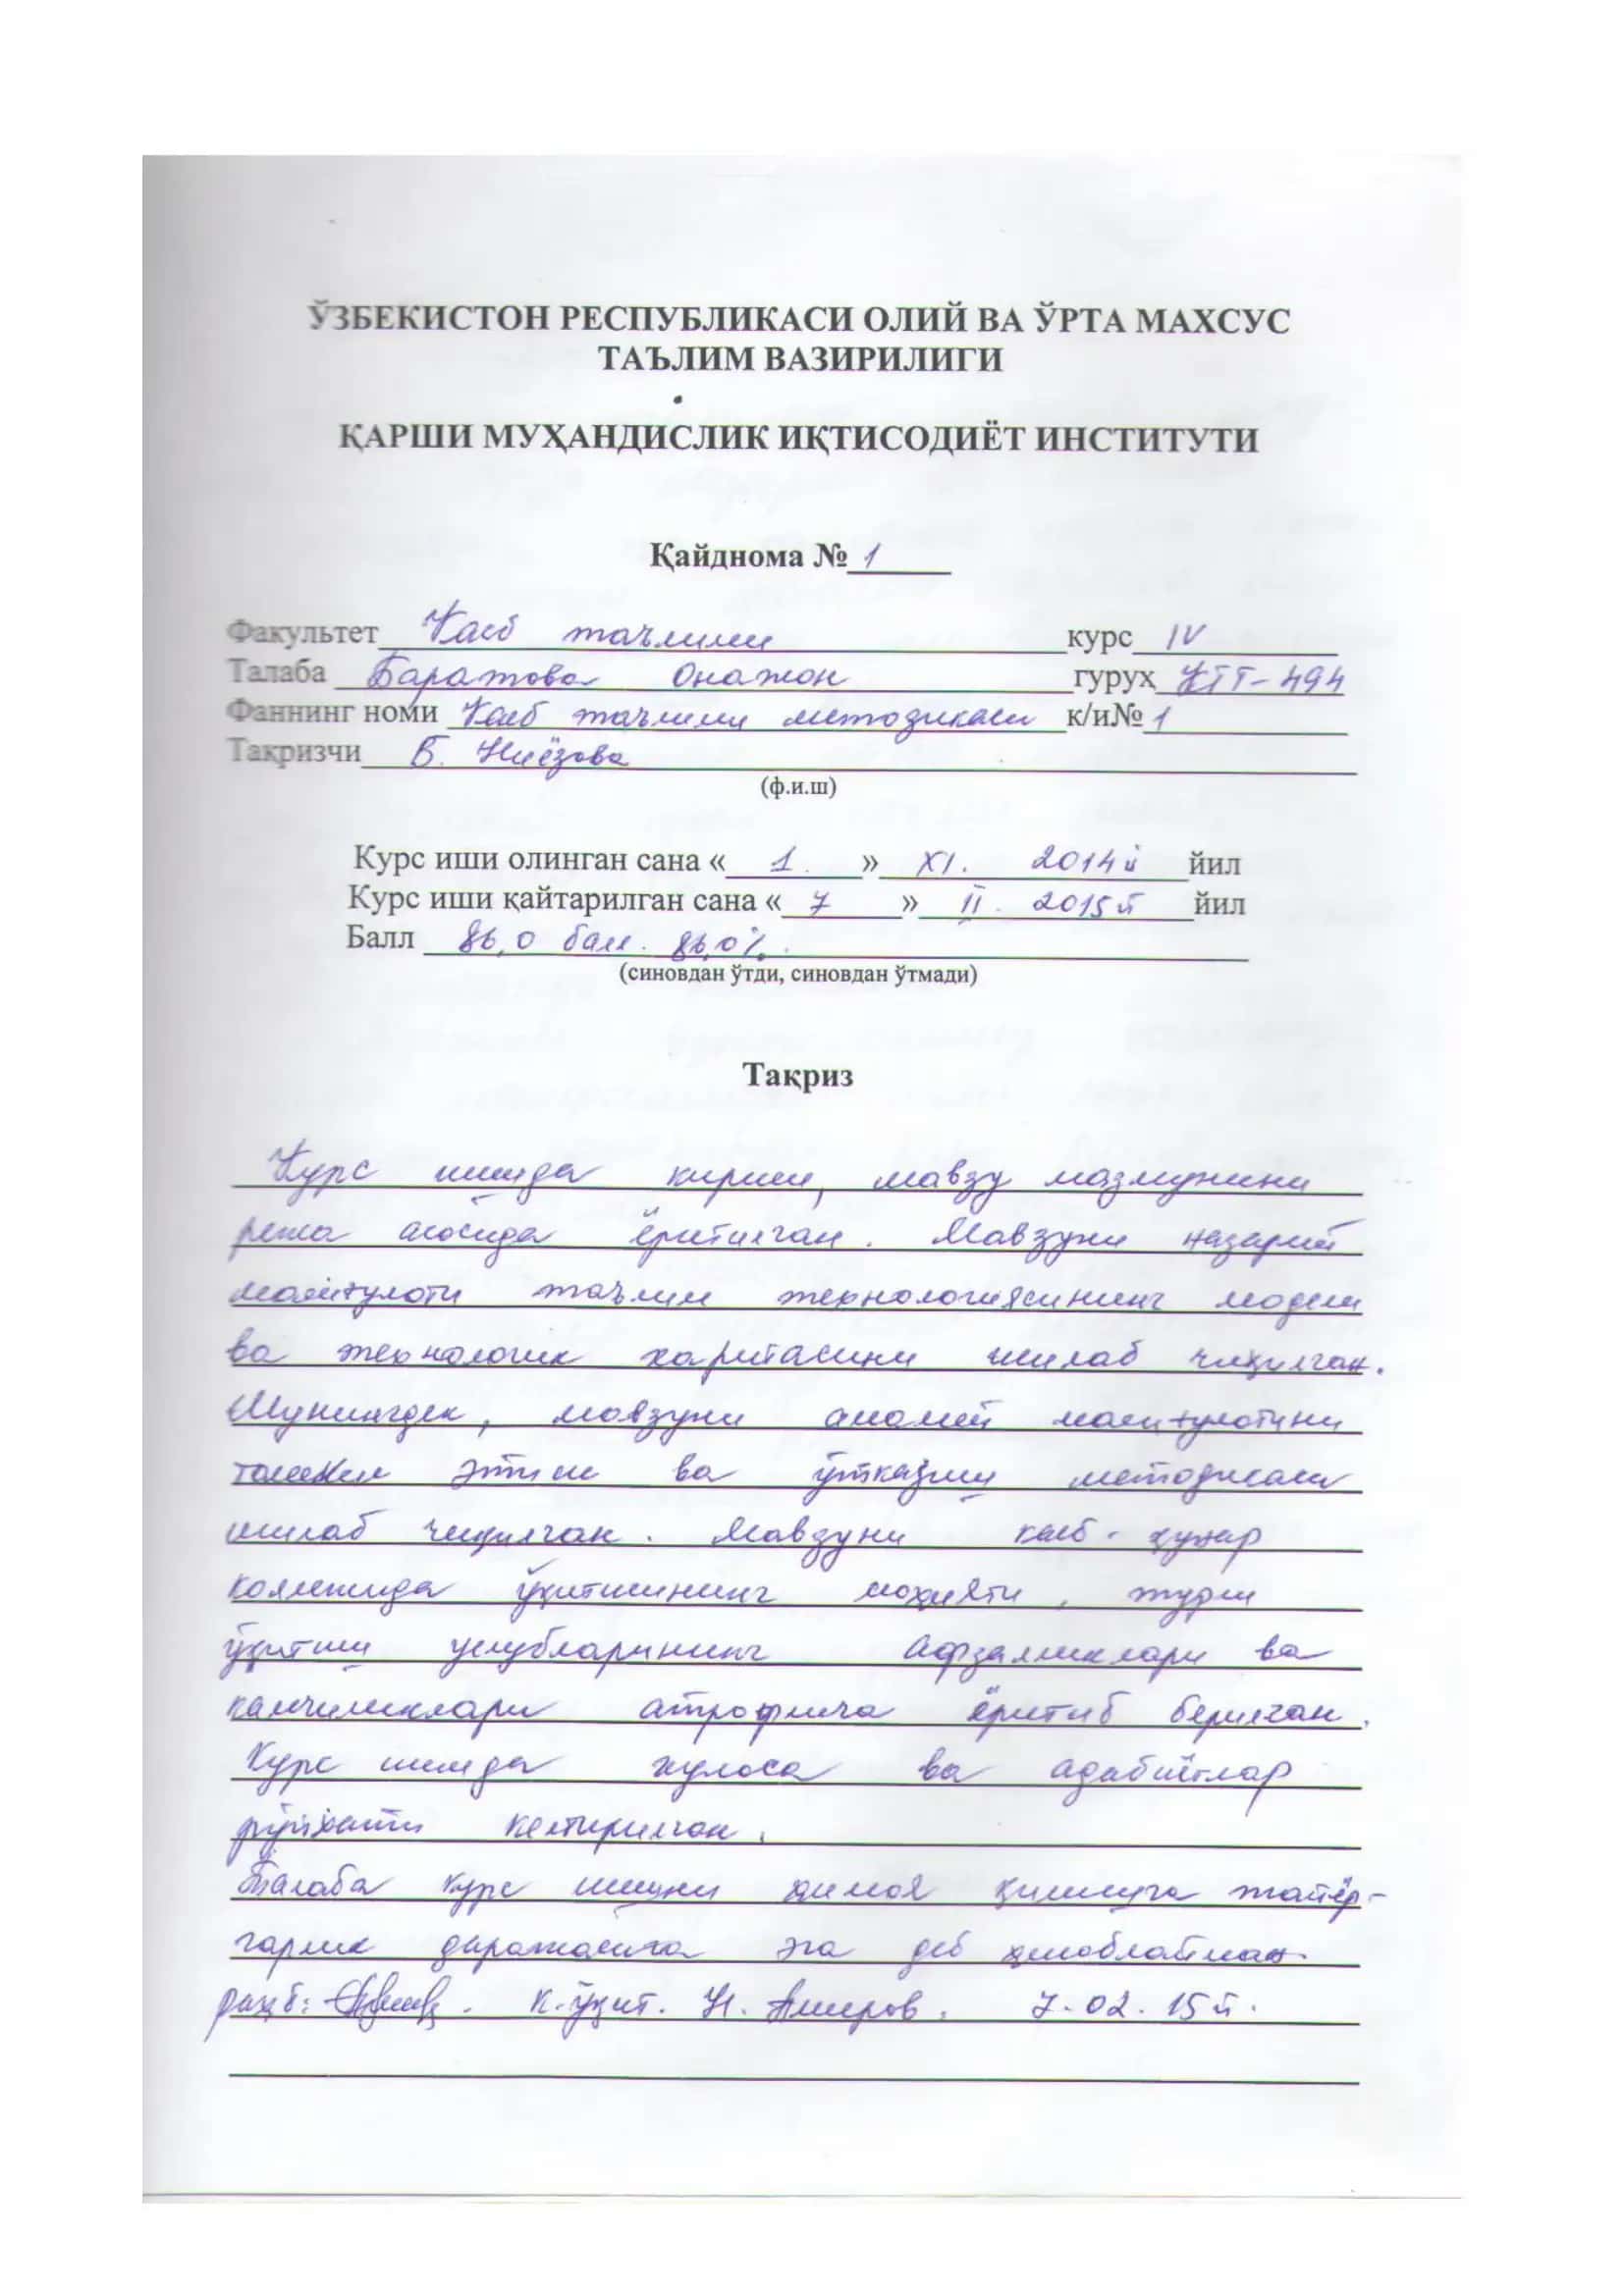 ЎЗБЕКИСТОН РЕСПУБЛИКАСИ ОЛИЙ ВА ЎРТА МАХСУС
ТАЪЛИМ ВАЗИРИЛИГИ
ҚАРШИ МУҲАНДИСЛИК ИҚТИСОДИЁТ ИНСТИТУТИ
Қайднома № 1
Факультет Касб таълими курс IV
Талаба Баратова Онажон гуруҳ КТТ-494
Фаннинг номи Касб таълими методикаси к/и№ 1
Тақризчи Б. Ниёзова
(ф.и.ш)
Курс иши олинган сана « 1. » XI. 2014й йил
Курс иши қайтарилган сана « 7 » II. 2015й йил
Балл 86,0 балл. 86,0%.
(синовдан ўтди, синовдан ўтмади)
Тақриз
Курс ишида кириш, мавзу мазмунини
режа асосида ёритилган. Мавзуни назарий
машғулоти таълим технологиясининг модели
ва технологик харитасини ишлаб чиқилган.
Шунингдек, мавзуни амалий машғулотини
ташкил этиш ва ўтказиш методикаси
ишлаб чиқилган. Мавзуни касб-ҳунар
коллежида ўқитишнинг моҳияти, турли
ўқитиш услубларининг афзалликлари ва
камчиликлари атрофлича ёритиб берилган.
Курс ишида хулоса ва адабиётлар
рўйхати келтирилган.
Талаба курс ишини ҳимоя қилишга тайёр-
гарлик даражасига эга деб ҳисоблайман.
раҳб: К.ўқит. Н. Амиров. 7.02.15й.